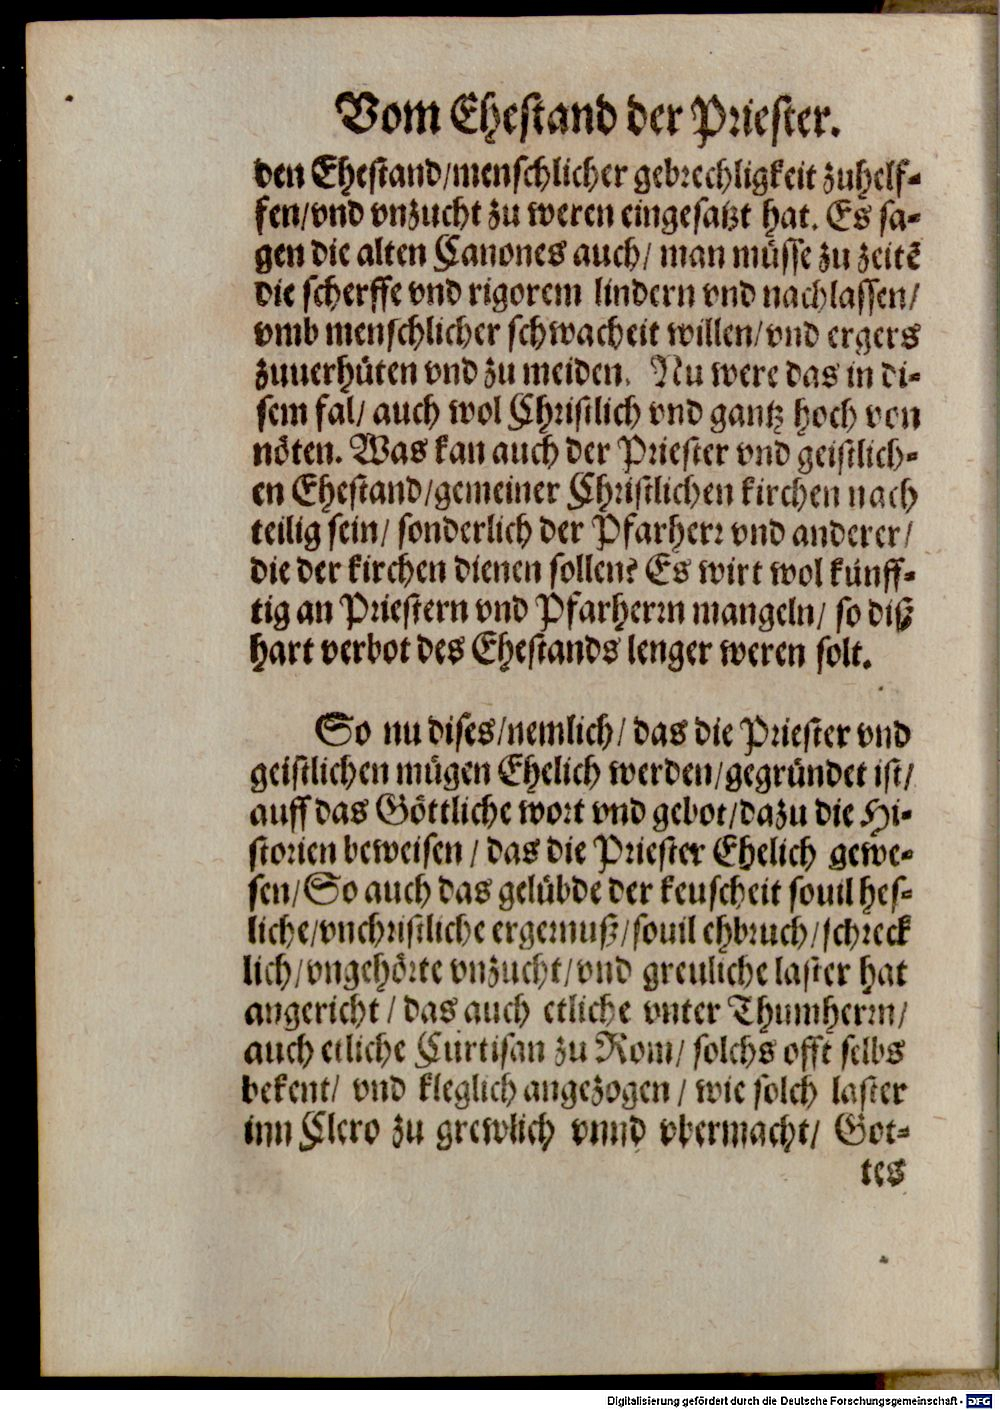 Vom Ehestand der Priester.
den Ehestand/menschlicher gebrechligkeit zuhelf-
fen/vnd vnzucht zu weren eingesatzt hat. Es sa-
gen die alten Canones auch/ man müsse zu zeitē
die scherffe vnd rigorem lindern vnd nachlassen/
vmb menschlicher schwacheit willen/vnd ergers
zuuerhüten vnd zu meiden. Nu were das in di-
sem fal/ auch wol Christlich vnd gantz hoch von
nöten. Was kan auch der Priester vnd geistlich-
en Ehestand/gemeiner Christlichen kirchen nach
teilig sein/ sonderlich der Pfarherr vnd anderer/
die der kirchen dienen sollen? Es wirt wol künff-
tig an Priestern vnd Pfarherrn mangeln/ so diß
hart verbot des Ehestands lenger weren solt.
So nu dises/nemlich/ das die Priester vnd
geistlichen mügen Ehelich werden/gegründet ist/
auff das Göttliche wort vnd gebot/dazu die Hi-
storien beweisen / das die Priester Ehelich gewe-
sen/So auch das gelübde der keuscheit souil hes-
liche/vnchristliche ergernuß/souil ehbruch/schreck
lich/vngehörte vnzucht/vnd greuliche laster hat
angericht / das auch etliche vnter Thumherrn/
auch etliche Curtisan zu Rom/ solchs offt selbs
bekent/ vnd kleglich angezogen / wie solch laster
inn Clero zu grewlich vnnd vbermacht/ Got-
tes
Digitalisierung gefördert durch die Deutsche Forschungsgemeinschaft - DFG